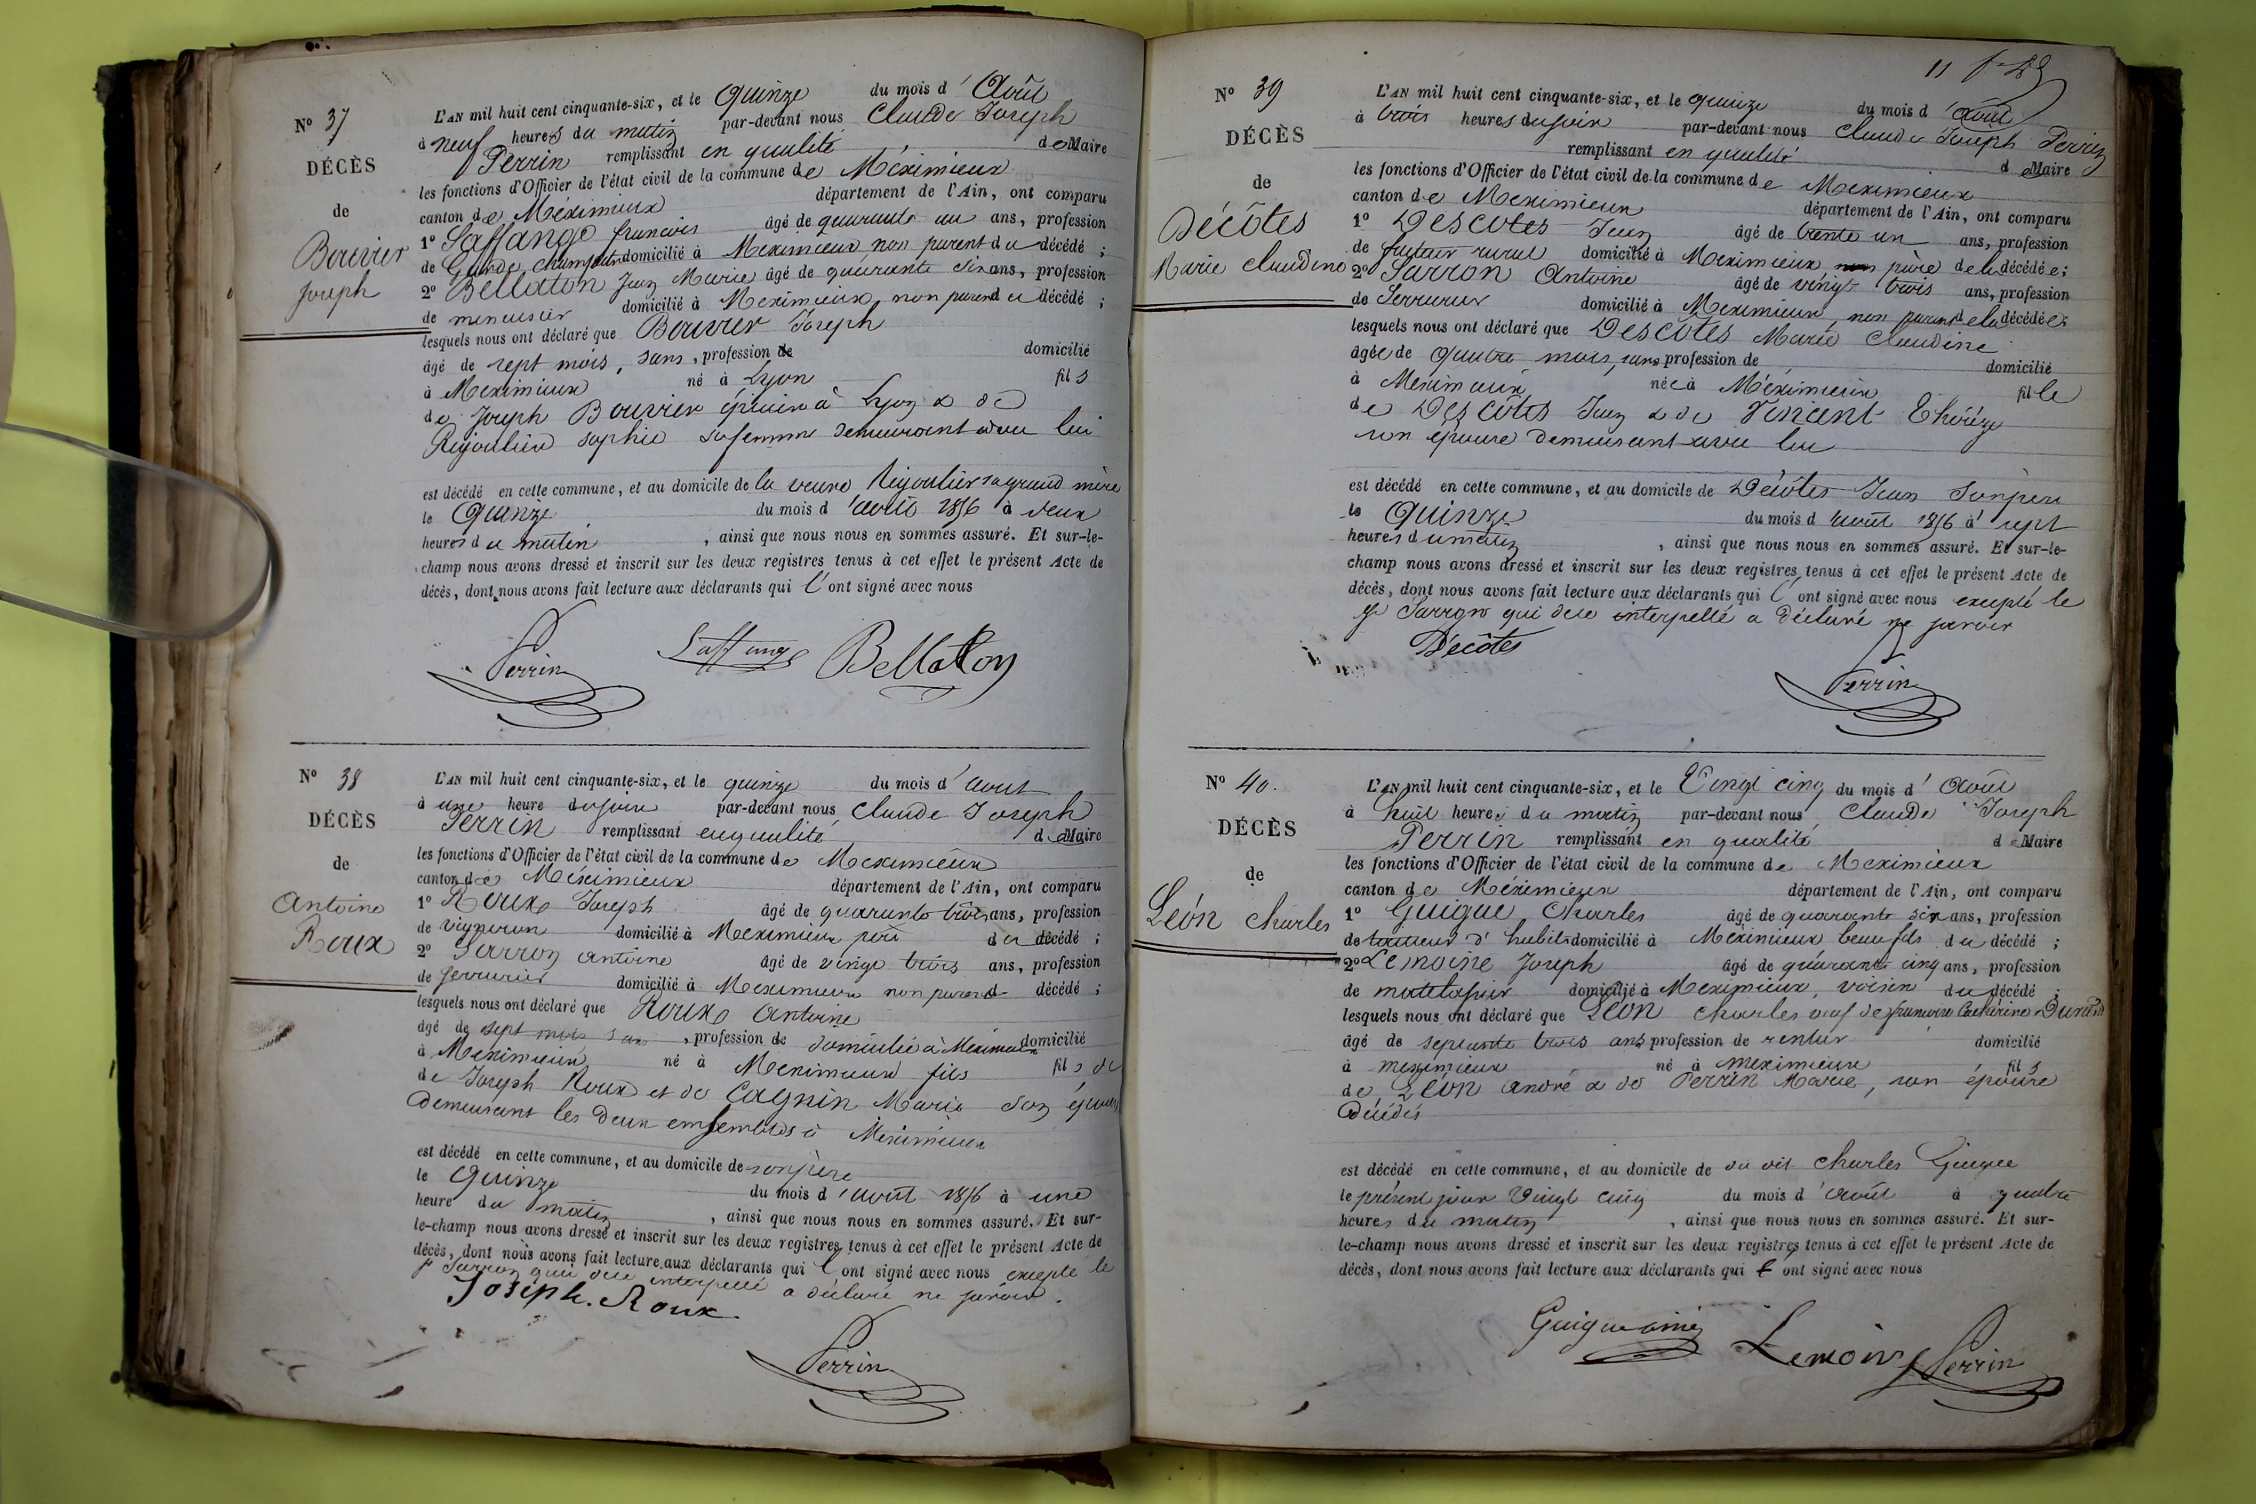 N° 37
DÉCÈS
de
Bouvier
Joseph
L'AN mil huit cent cinquante-six, et le quinze du mois d'Août
à neuf heures du matin par-devant nous Claude Joseph
Perrin remplissant en qualité de Maire
les fonctions d'Officier de l'état civil de la commune de Méximieux
canton de Méximieux département de l'Ain, ont comparu
1° Laffange francois âgé de quarante un ans, profession
de Garde champêtre domicilié à Meximieux non parent du décédé ;
2° Bellaton Jean Marie âgé de quarante six ans, profession
de menuisier domicilié à Meximieux, non parent du décédé ;
lesquels nous ont déclaré que Bouvier Joseph
âgé de sept mois, sans, profession de domicilié
à Meximieux né à Lyon fils
de Joseph Bouvier épicier à Lyon & de
Rigoulier sophie sa femme demeurant avec lui
est décédé en cette commune, et au domicile de la veuve Rigoulier sa grand mère
le Quinze du mois d'août 1856 à deux
heures du matin, ainsi que nous nous en sommes assuré. Et sur-le-
champ nous avons dressé et inscrit sur les deux registres tenus à cet effet le présent Acte de
décès, dont nous avons fait lecture aux déclarants qui l'ont signé avec nous
Perrin Laffange Bellaton
N° 38
DÉCÈS
de
Antoine
Roux
L'AN mil huit cent cinquante-six, et le quinze du mois d'aout
à une heure du soir par-devant nous Claude Joseph
Perrin remplissant en qualité de Maire
les fonctions d'Officier de l'état civil de la commune de Meximieux
canton de Méximieux département de l'Ain, ont comparu
1° Roux Joseph âgé de quarante trois ans, profession
de vigneron domicilié à Meximieux père du décédé ;
2° Sarron antoine âgé de vingt trois ans, profession
de serrurier domicilié à Meximieux non parent d décédé ;
lesquels nous ont déclaré que Roux Antoine
âgé de sept mois sans, profession de domicilié à Meximieux domicilié
à Meximieux né à Meximieux fils fils de
de Joseph Roux et de Cagnin Marie son épouse
demeurant les deux ensembles à Meximieux
est décédé en cette commune, et au domicile de son père
le Quinze du mois d'août 1856 à une
heure du matin, ainsi que nous nous en sommes assuré. Et sur-
le-champ nous avons dressé et inscrit sur les deux registres tenus à cet effet le présent Acte de
décès, dont nous avons fait lecture aux déclarants qui l'ont signé avec nous excepté le
Sr Sarron qui de ce interpellé a déclaré ne savoir.
Joseph. Roux
Perrin
11
N° 39
DÉCÈS
de
Décôtes
Marie Claudine
L'AN mil huit cent cinquante-six, et le quinze du mois d'août
à trois heures du soir par-devant nous Claude Joseph Perrin
remplissant en qualité de Maire
les fonctions d'Officier de l'état civil de la commune de Meximieux
canton de Meximieux département de l'Ain, ont comparu
1° Descotes Jean âgé de trente un ans, profession
de facteur rural domicilié à Meximieux non père de la décédée ;
2° Sarron Antoine âgé de vingt trois ans, profession
de Serrurier domicilié à Meximieux, non parent de la décédée ;
lesquels nous ont déclaré que Descotes Marie Claudine
âgée de quatre mois, sans profession de domicilié
à Meximieux née à Méximieux fille
de Descôtes Jean & de Vincent Thérèze
son épouse demeurant avec lui
est décédé en cette commune, et au domicile de Décôtes Jean son père
le Quinze du mois d'août 1856 à sept
heures du matin, ainsi que nous nous en sommes assuré. Et sur-le-
champ nous avons dressé et inscrit sur les deux registres tenus à cet effet le présent Acte de
décès, dont nous avons fait lecture aux déclarants qui l'ont signé avec nous excepté le
Sr Sarron qui de ce interpellé a déclaré ne savoir
Décôtes
Perrin
N° 40.
DÉCÈS
de
Léon Charles
L'AN mil huit cent cinquante-six, et le Vingt cinq du mois d'Août
à huit heures du matin par-devant nous Claude Joseph
Perrin remplissant en qualité de Maire
les fonctions d'Officier de l'état civil de la commune de Meximieux
canton de Méximieux département de l'Ain, ont comparu
1° Guigue Charles âgé de quarante six ans, profession
de tailleur d'habits domicilié à Méximieux beau fils du décédé ;
2° Lemoine Joseph âgé de quarante cinq ans, profession
de matelassier domicilié à Meximieux, voisin du décédé ;
lesquels nous ont déclaré que Léon Charles veuf de francoise Cathérine Durand
âgé de septante trois ans profession de rentier domicilié
à meximieux né à meximieux fils
de Léon André & de Perrin Marie, son épouse
décédés
est décédé en cette commune, et au domicile de du dit Charles Guigue
le présent jour Vingt cinq du mois d'Août à quatre
heures du matin, ainsi que nous nous en sommes assuré. Et sur-
le-champ nous avons dressé et inscrit sur les deux registres tenus à cet effet le présent Acte de
décès, dont nous avons fait lecture aux déclarants qui l'ont signé avec nous
Guigue ainé Lemoine Perrin